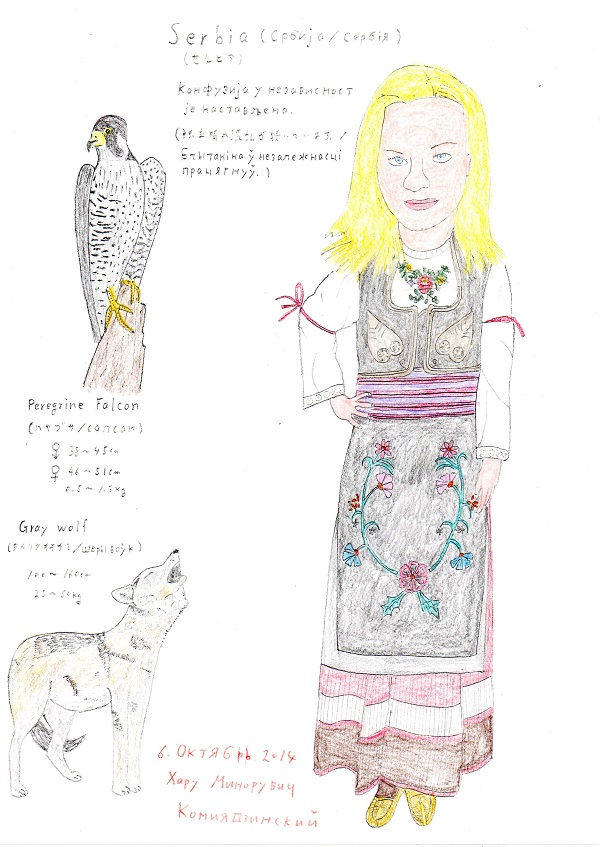 Serbia (Србија/Сербія)
(セルビア)
Конфузија у независност
је настављено.
Бпытаніна ў незалежнасці
працягнуў.)
Peregrine Falcon
(ハヤブサ/сапсан)
♂ 38~45cm
♀ 46~51cm
0.5~1.3kg
Gray wolf
(タイリクオオカミ/шэры воўк)
100~160cm
25~50kg
6. Октябрь 2014
Хару Минорувич
Комиядзинский